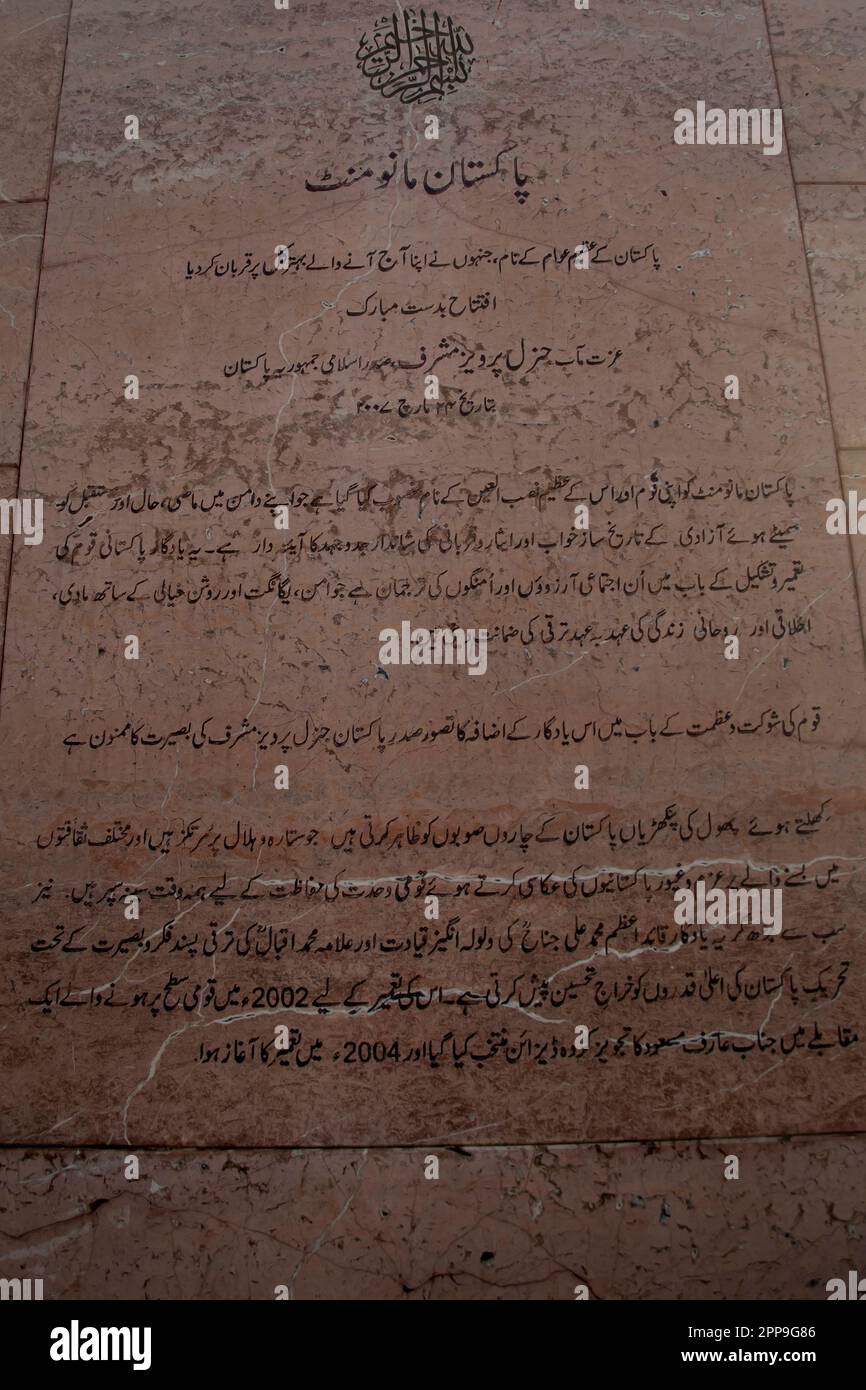 بسم الله الرحمن الرحيم
پاکستان مانومنٹ
پاکستان کے عظیم عوام کے نام، جنہوں نے اپنا آج آنے والے بہتر کل پر قربان کر دیا
افتتاح بدست مبارک
عزت مآب جنرل پرویز مشرف، صدر اسلامی جمہوریہ پاکستان
بتاریخ ۲۳ مارچ ۲۰۰۷
پاکستان مانومنٹ کو اپنی قوم اور اس کے عظیم نصب العین کے نام منسوب کیا گیا ہے جو اپنے دامن میں ماضی، حال اور مستقبل کو
سمیٹے ہوئے آزادی کے تاریخ ساز خواب اور ایثار و قربانی کی شاندار جدوجہد کا آئینہ دار ہے۔ یہ یادگار پاکستانی قوم کی
تعمیر و تشکیل کے باب میں اُن اجتماعی آرزوؤں اور اُمنگوں کی ترجمان ہے جو امن، یگانگت اور روشن خیالی کے ساتھ مادی،
اخلاقی اور روحانی زندگی کی عہد بہ عہد ترقی کی ضمانت
قوم کی شوکت و عظمت کے باب میں اس یادگار کے اضافہ کا تصور صدر پاکستان جنرل پرویز مشرف کی بصیرت کا ممنون ہے
کھلتے ہوئے پھول کی پنکھڑیاں پاکستان کے چاروں صوبوں کو ظاہر کرتی ہیں جو ستارہ و ہلال پر مرتکز ہیں اور مختلف ثقافتوں
میں بسنے والے پر عزم و غیور پاکستانیوں کی عکاسی کرتے ہوئے قومی وحدت کی حفاظت کے لیے ہمہ وقت سینہ سپر ہیں۔ نیز
سب سے بڑھ کر یہ یادگار قائد اعظم محمد علی جناحؒ کی ولولہ انگیز قیادت اور علامہ محمد اقبالؒ کی ترقی پسند فکر و بصیرت کے تحت
تحریک پاکستان کی اعلیٰ قدروں کو خراج تحسین پیش کرتی ہے۔ اس کی تعمیر کے لیے 2002ء میں قومی سطح پر ہونے والے ایک
مقابلے میں جناب عارف مسعود کا تجویز کردہ ڈیزائن منتخب کیا گیا اور 2004ء میں تعمیر کا آغاز ہوا۔
alamy
alamy
Image ID: 2PP9G86
www.alamy.com